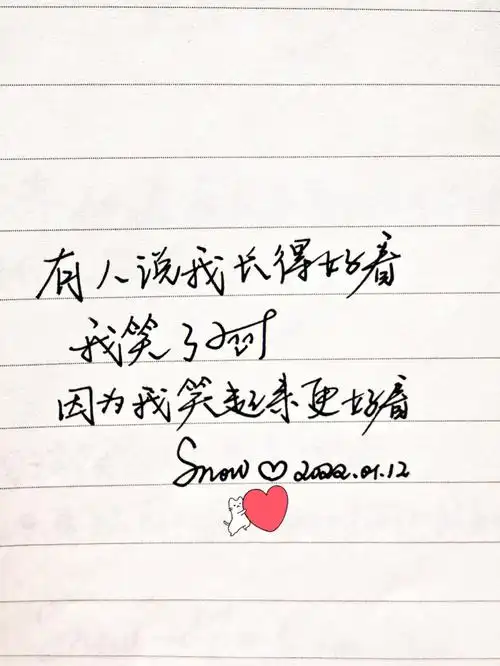 有人说我长得好看
我笑了
因为我笑起来更好看
Snow♡2022.01.12